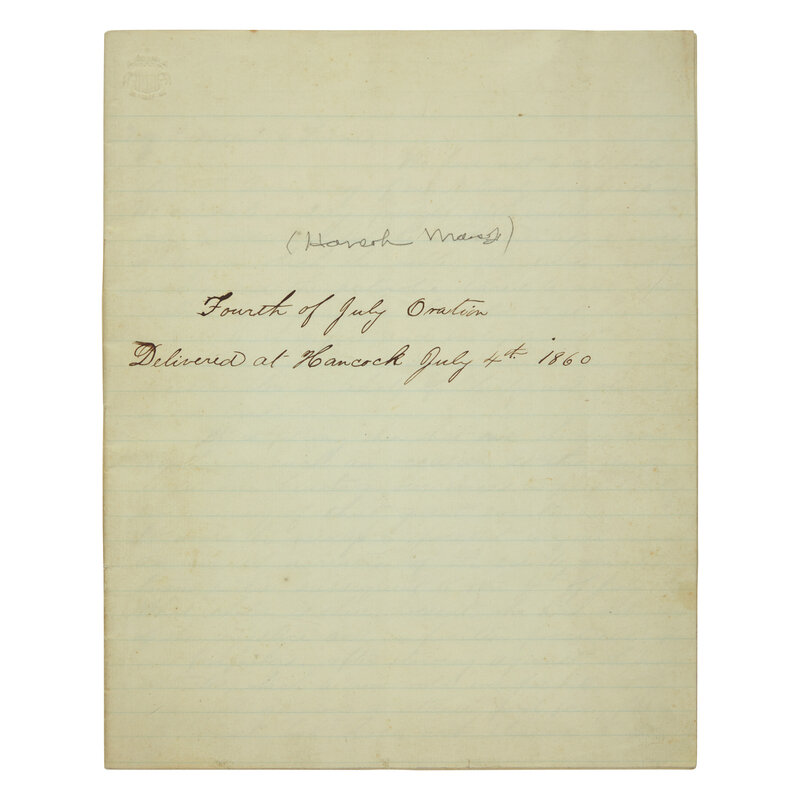 Fourth of July Oration
Delivered at Hancock July 4th 1860